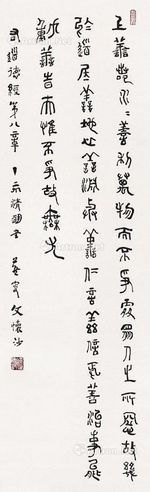 上善若水〻善利萬物而不爭處眾人之所惡故幾
於道居善地心善淵與善仁言善信正善治事善能
動善時夫惟不爭故無尤
道德經第八章 燕叟文懷沙